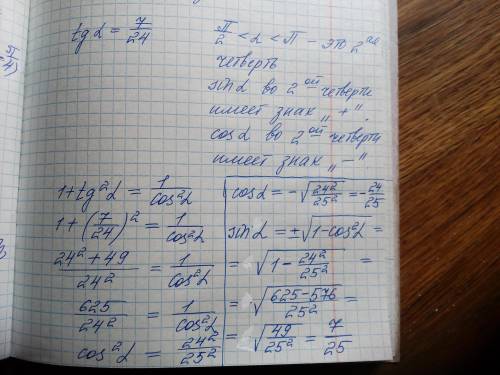 tg α = 7/24
π/2 < α < π – это 2ая
четверть
sin α во 2ой четверти
имеет знак „+“,
cos α во 2ой четверти
имеет знак „–“
1 + tg²α = 1/cos²α
1 + (7/24)² = 1/cos²α
(24² + 49)/24² = 1/cos²α
625/24² = 1/cos²α
cos²α = 24²/25²
cos α = -√(24²/25²) = -24/25
sin α = ±√(1 - cos²α) =
= √(1 - 24²/25²) =
= √((625 - 576)/25²) =
= √(49/25²) = 7/25